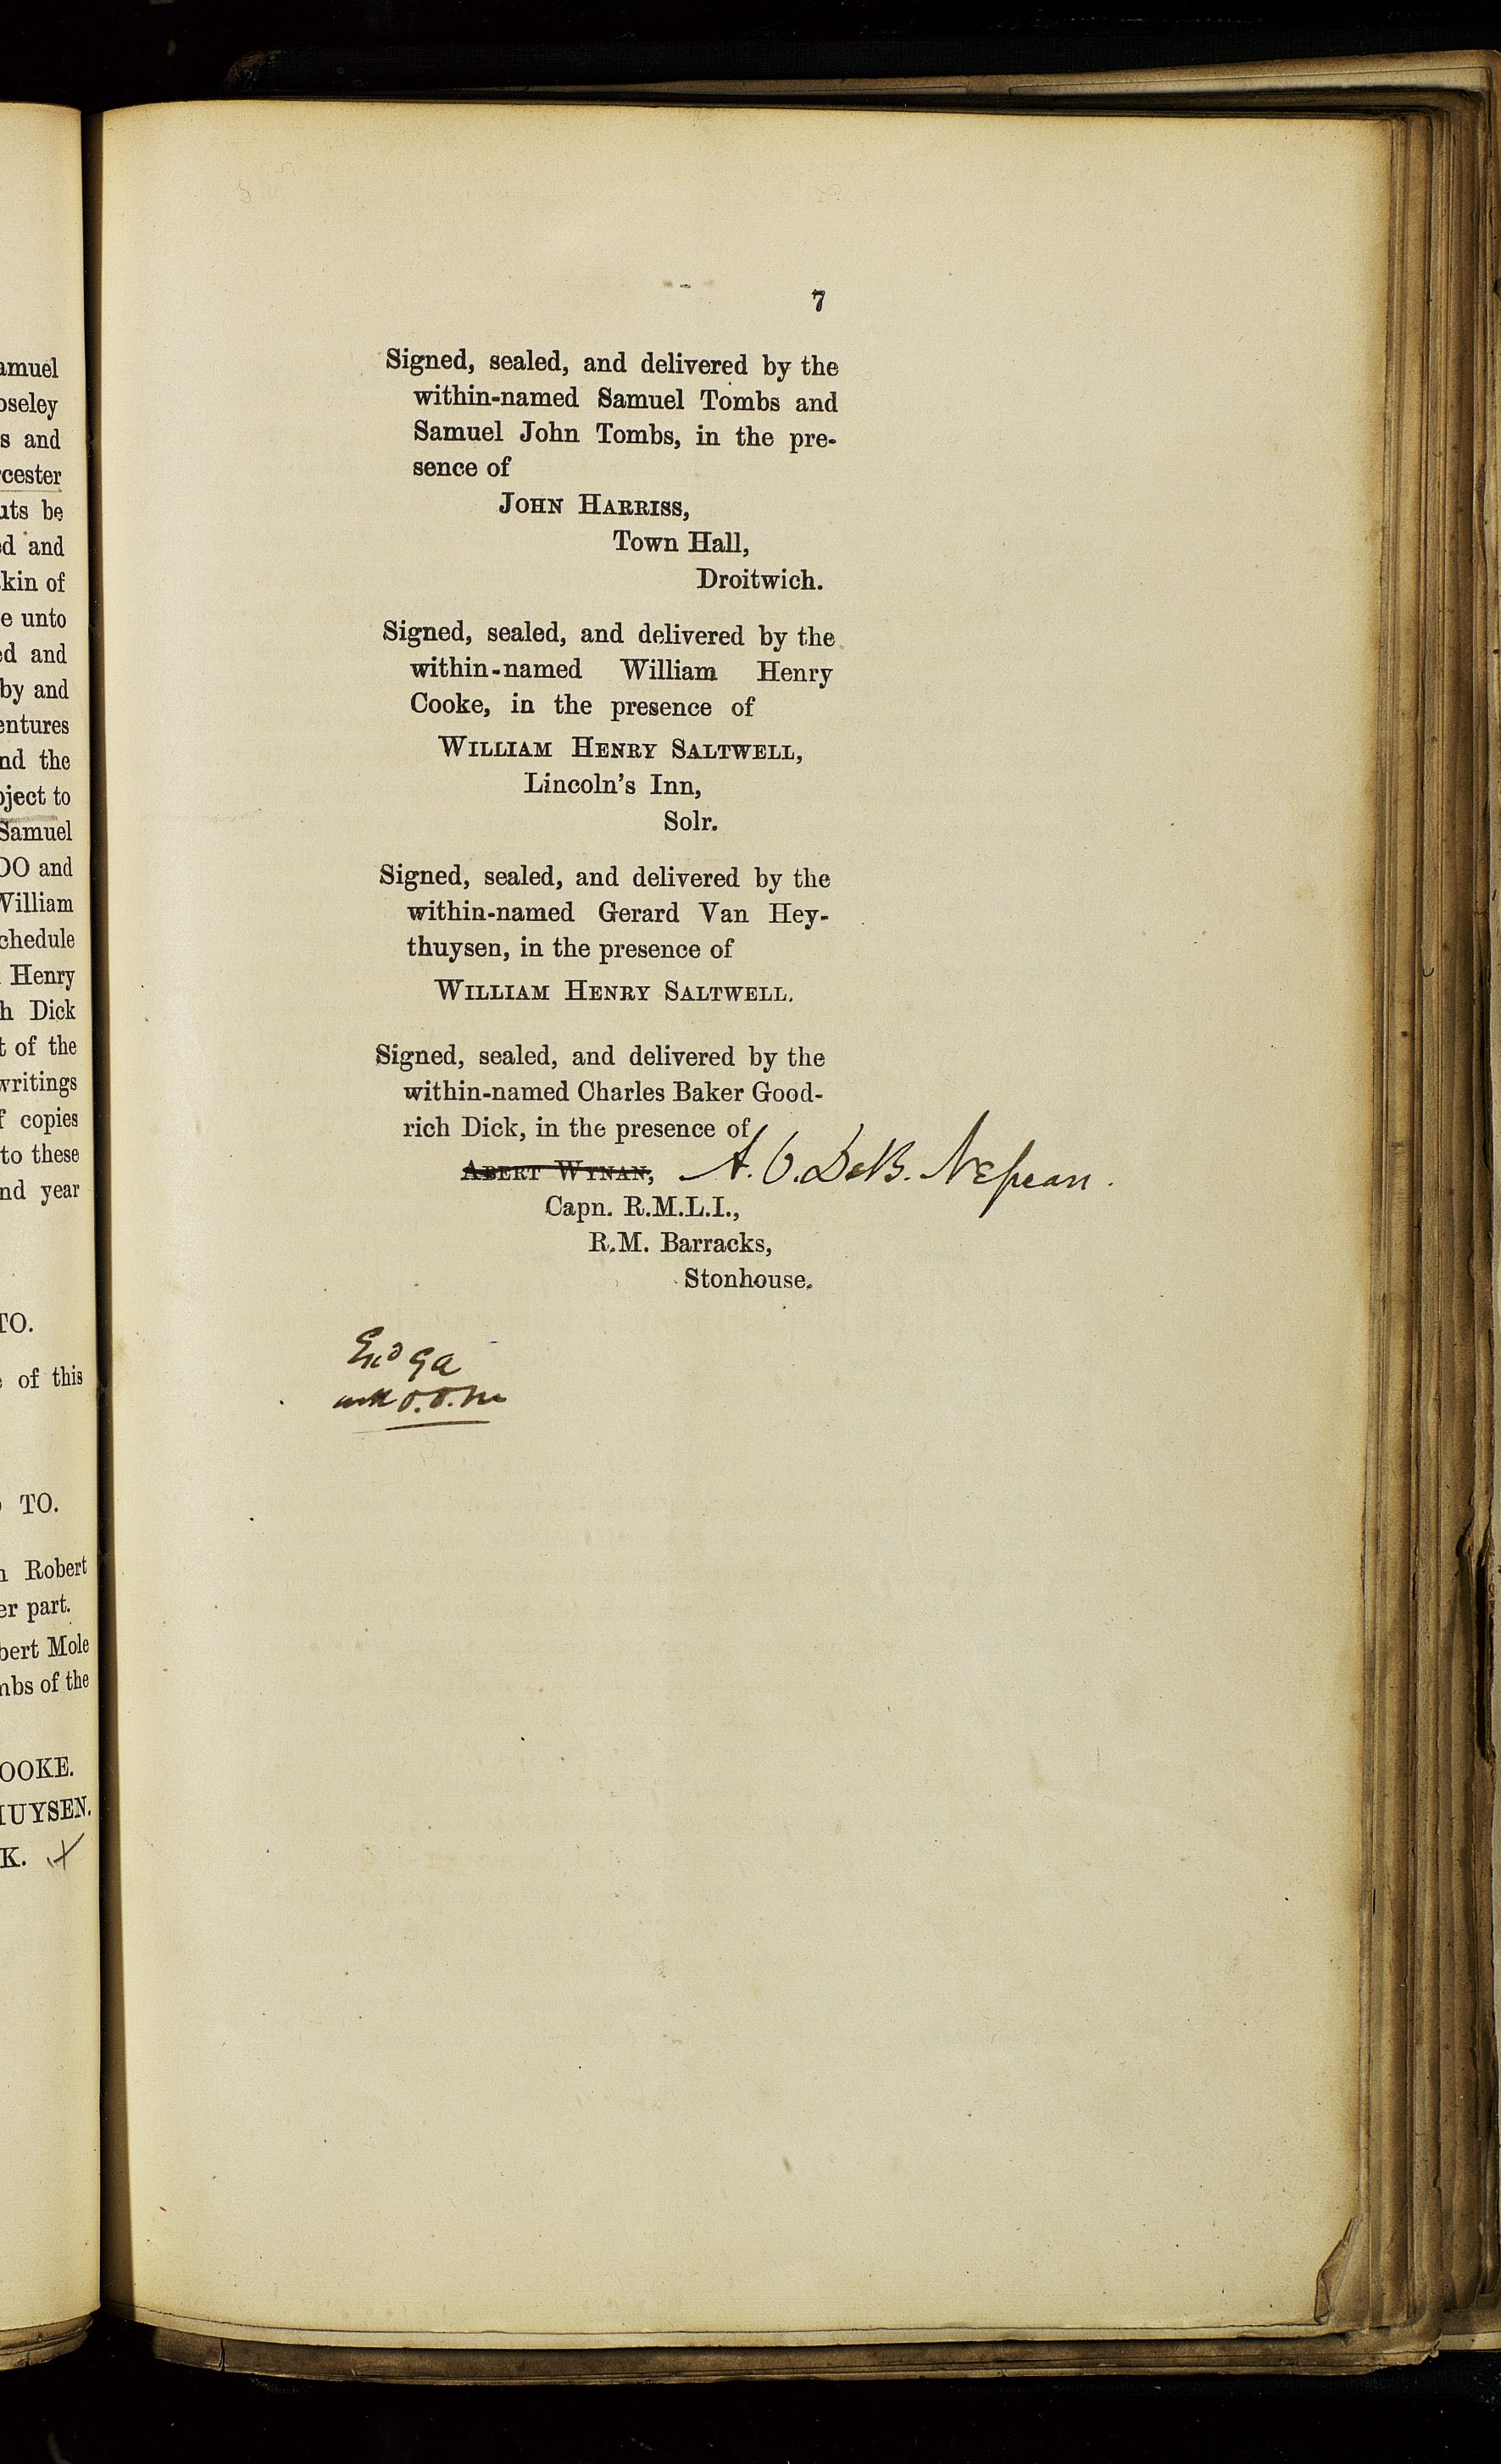 amuel
oseley
s and
cester
uts be
d and
kin of
e unto
ed and
by and
entures
nd the
bject to
Samuel
OO and
William
chedule
Henry
h Dick
t of the
writings
f copies
to these
nd year
TO.
of this
TO.
Robert
er part.
bert Mole
mbs of the
OOKE.
HUYSEN.
K.
7
Signed, sealed, and delivered by the
within-named Samuel Tombs and
Samuel John Tombs, in the pre-
sence of
JOHN HARRISS,
Town Hall,
Droitwich.
Signed, sealed, and delivered by the
within-named William Henry
Cooke, in the presence of
WILLIAM HENRY SALTWELL,
Lincoln's Inn,
Solr.
Signed, sealed, and delivered by the
within-named Gerard Van Hey-
thuysen, in the presence of
WILLIAM HENRY SALTWELL.
Signed, sealed, and delivered by the
within-named Charles Baker Good-
rich Dick, in the presence of
ABERT WYNAN, A. DeB. Nepean.
Capn. R.M.L.I.,
R.M. Barracks,
Stonhouse.